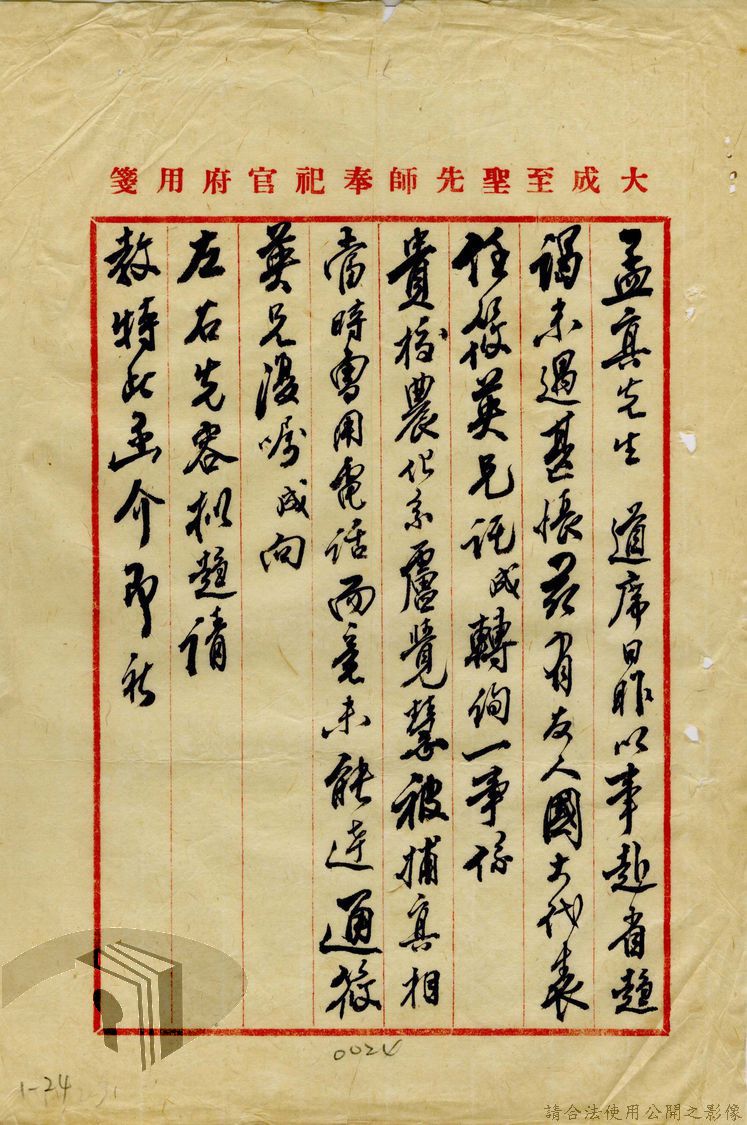 大成至聖先師奉祀官府用箋
孟真先生 道席日昨以事赴省趨
謁未遇甚悵茲有友人國大代表
任筱英兄託成轉詢一事係
貴校農化系盧覺慧被捕真相
當時曾用電話而竟未能達通筱
英兄復囑成向
左右先容擬趨請
教特此函介即祈
0024
1-24
請合法使用公開之影像